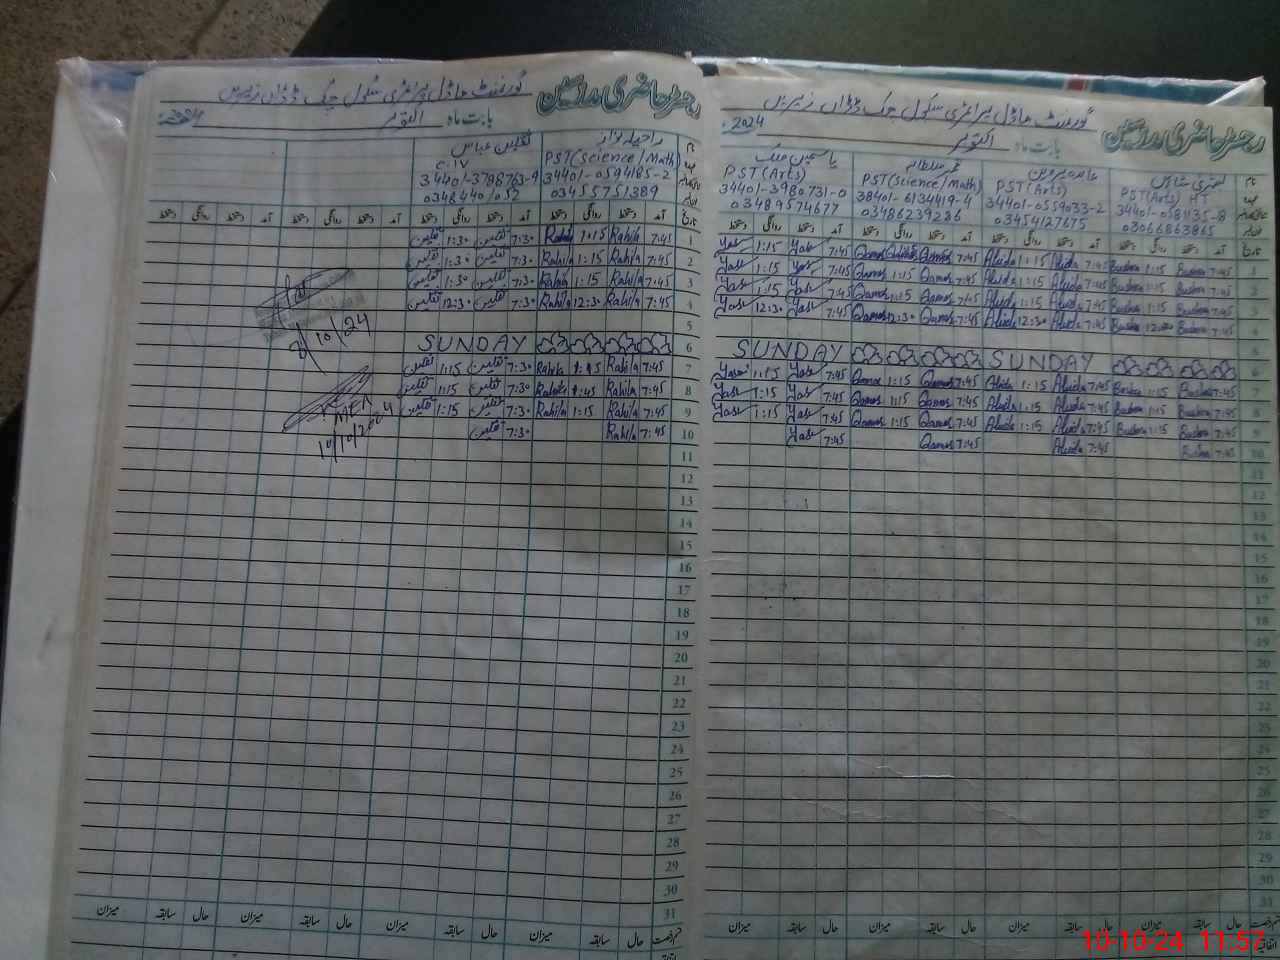 رجسٹر حاضری مدرسین
گورنمنٹ ماڈل پرائمری سکول چک ڈڈاں زیریں
بابت ماہ اکتوبر 2024
نام
بشریٰ شاہین
عابدہ پروین
یاسمین ملک
PST(Arts) HT
PST(Arts)
PST(Science/Math)
PST(Arts)
34401-0559033-2
38401-6134419-4
34401-3980731-0
03066863865
03454127675
03486239286
03489574677
تاریخ آمد دستخط روانگی دستخط آمد دستخط روانگی دستخط آمد دستخط روانگی دستخط آمد دستخط روانگی دستخط
1 7:45 Bushra 1:15 Bushra 7:45 Abida 1:15 Abida 7:45 Qamar 7:45 Yas 1:15 Yas
2 7:45 Bushra 1:15 Bushra 7:45 Abida 1:15 Abida 7:45 Qamar 1:15 Qamar 7:45 Yas 1:15 Yas
3 7:45 Bushra 1:15 Bushra 7:45 Abida 1:15 Abida 7:45 Qamar 1:15 Qamar 7:45 Yas 1:15 Yas
4 7:45 Bushra Bushra 7:45 Abida 12:30 Abida 7:45 Qamar 12:30 Qamar 7:45 Yas 12:30 Yas
5
6 SUNDAY SUNDAY
7 7:45 Bushra 1:15 Bushra 7:45 Abida 1:15 Abida 7:45 Qamar 1:15 Qamar 7:45 Yas 1:15 Yas
8 7:45 Bushra 1:15 Bushra 7:45 Abida 1:15 Abida 7:45 Qamar 1:15 Qamar 7:45 Yas 1:15 Yas
9 7:45 Bushra 1:15 Bushra 7:45 Abida 1:15 Abida 7:45 Qamar 1:15 Qamar 7:45 Yas 1:15 Yas
10 7:45 Bushra 7:45 Abida 7:45 Qamar 7:45 Yas
11
12
13
14
15
16
17
18
19
20
21
22
23
24
25
26
27
28
29
30
31
حال سابقہ میزان حال سابقہ میزان حال سابقہ میزان حال سابقہ میزان
رجسٹر حاضری مدرسین
گورنمنٹ ماڈل پرائمری سکول چک ڈڈاں زیریں
بابت ماہ اکتوبر
نام
راحیلہ نواز
ثقلین عباس
PST(Science/Math)
C.IV
34401-0594185-2
34401-3786763-9
03455751389
تاریخ آمد دستخط روانگی دستخط آمد دستخط روانگی دستخط آمد دستخط روانگی دستخط آمد دستخط روانگی دستخط
1 7:45 Rahila 1:15 Rahila 7:30 ثقلین 1:30 ثقلین
2 7:45 Rahila 1:15 Rahila 7:30 ثقلین 1:30 ثقلین
3 7:45 Rahila 1:15 Rahila 7:30 ثقلین 1:30 ثقلین
4 7:45 Rahila 12:30 Rahila 7:30 ثقلین 12:30 ثقلین
5
6 SUNDAY
7 7:45 Rahila Rahila 7:30 ثقلین 1:15 ثقلین
8 7:45 Rahila Rahila 7:30 ثقلین 1:15 ثقلین
9 7:45 Rahila 1:15 Rahila 7:30 ثقلین 1:15 ثقلین
10 7:45 Rahila 7:30 ثقلین
11
12
13
14
15
16
17
18
19
20
21
22
23
24
25
26
27
28
29
30
31
8/10/24
MEA
حال سابقہ میزان حال سابقہ میزان حال سابقہ میزان حال سابقہ میزان
10-10-24 11:57